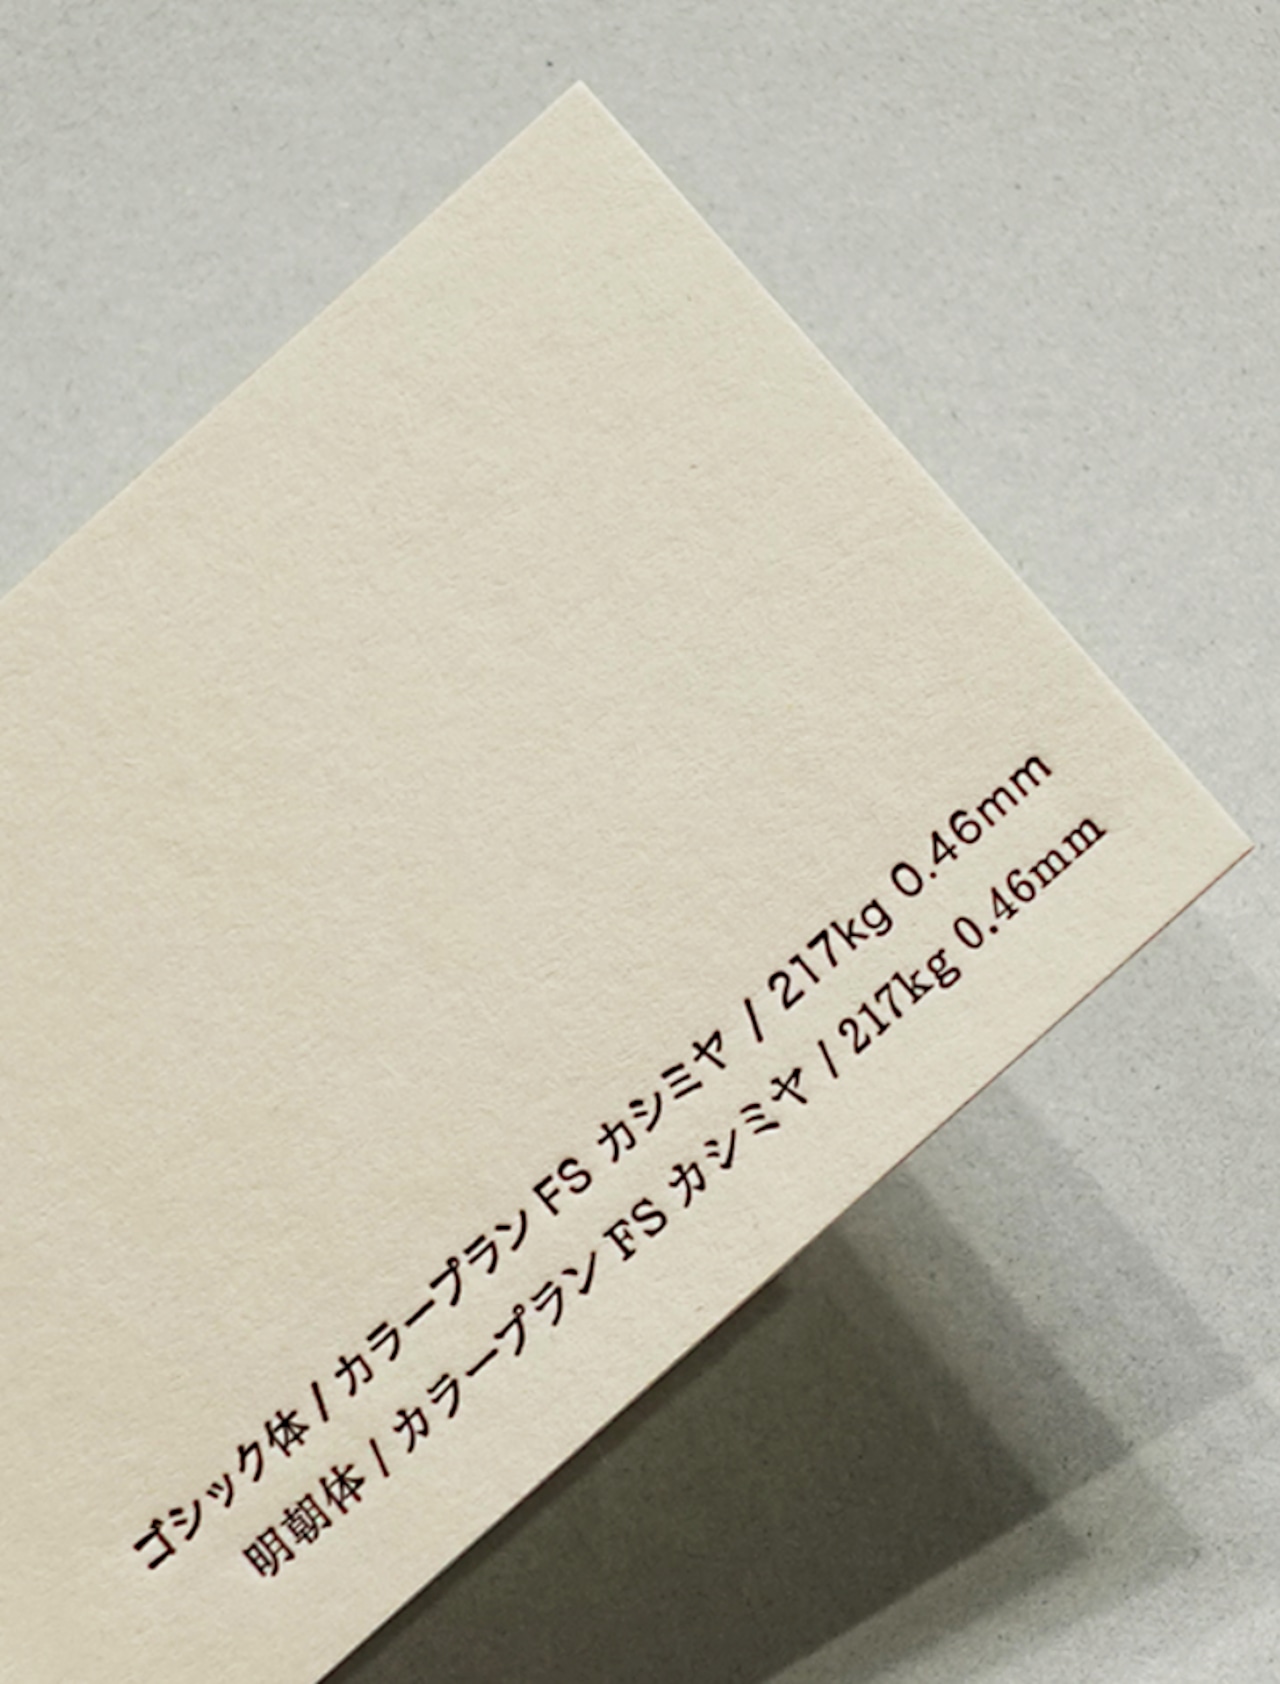 ゴシック体 / カラープラン FS カシミヤ / 217kg 0.46mm
明朝体 / カラープラン FS カシミヤ / 217kg 0.46mm